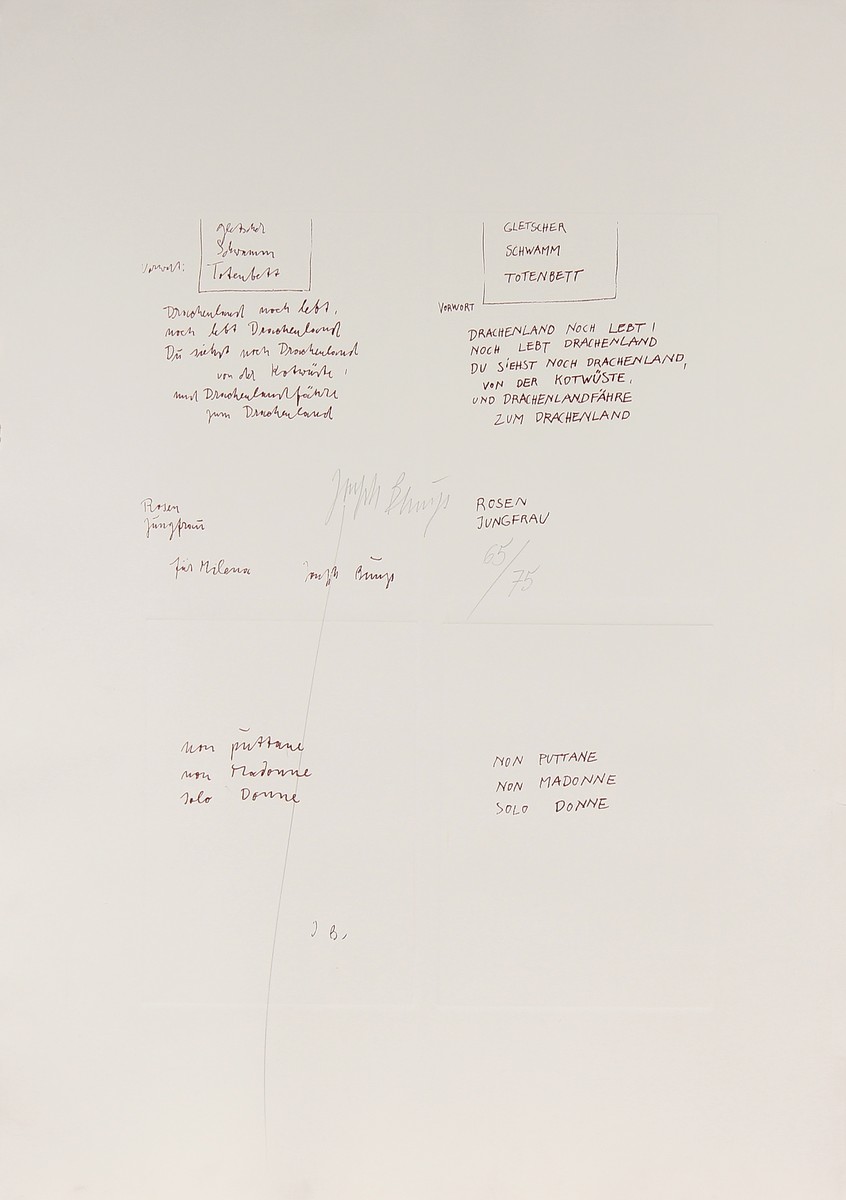 gletscher
Schwamm
Totenbett
Vorwort:
Drachenland noch lebt,
noch lebt Drachenland
Du siehst noch Drachenland
von der Kotwüste,
und Drachenlandfähre
zum Drachenland
Rosen
Jungfrau
für Milena
Joseph Beuys
GLETSCHER
SCHWAMM
TOTENBETT
VORWORT
DRACHENLAND NOCH LEBT!
NOCH LEBT DRACHENLAND
DU SIEHST NOCH DRACHENLAND,
VON DER KOTWÜSTE,
UND DRACHENLANDFÄHRE
ZUM DRACHENLAND
Joseph Beuys
ROSEN
JUNGFRAU
65/75
non puttane
non Madonne
solo Donne
J B.
NON PUTTANE
NON MADONNE
SOLO DONNE